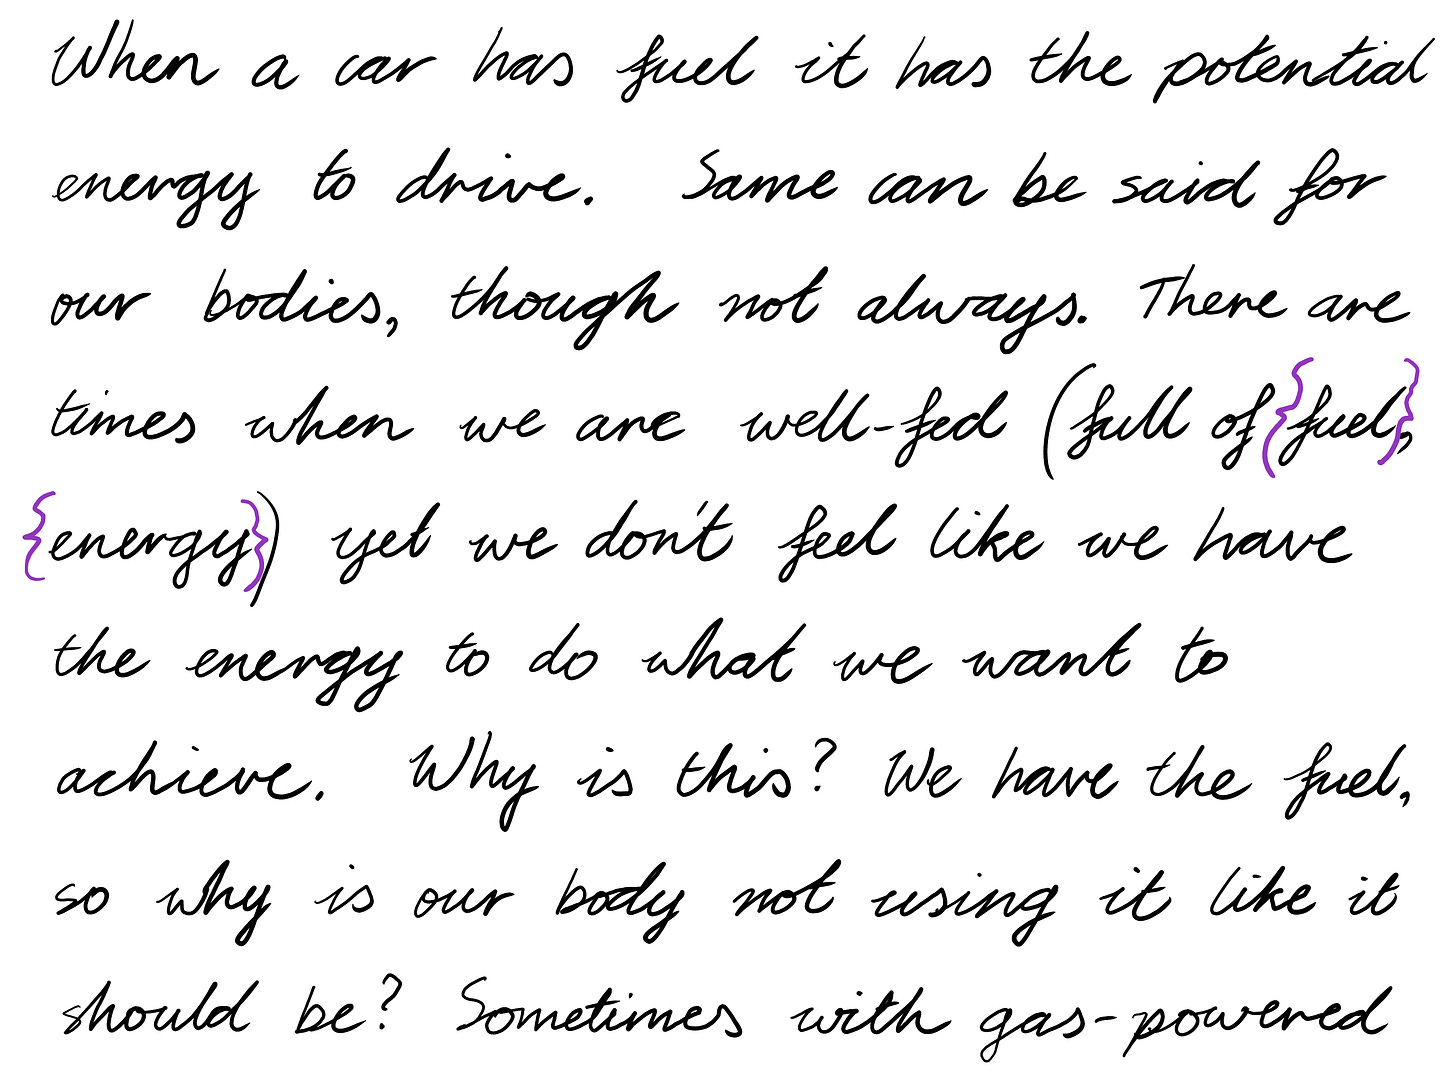 When a car has fuel it has the potential
energy to drive. Same can be said for
our bodies, though not always. There are
times when we are well-fed (full of {fuel},
{energy}) yet we don't feel like we have
the energy to do what we want to
achieve. Why is this? We have the fuel,
so why is our body not using it like it
should be? Sometimes with gas-powered